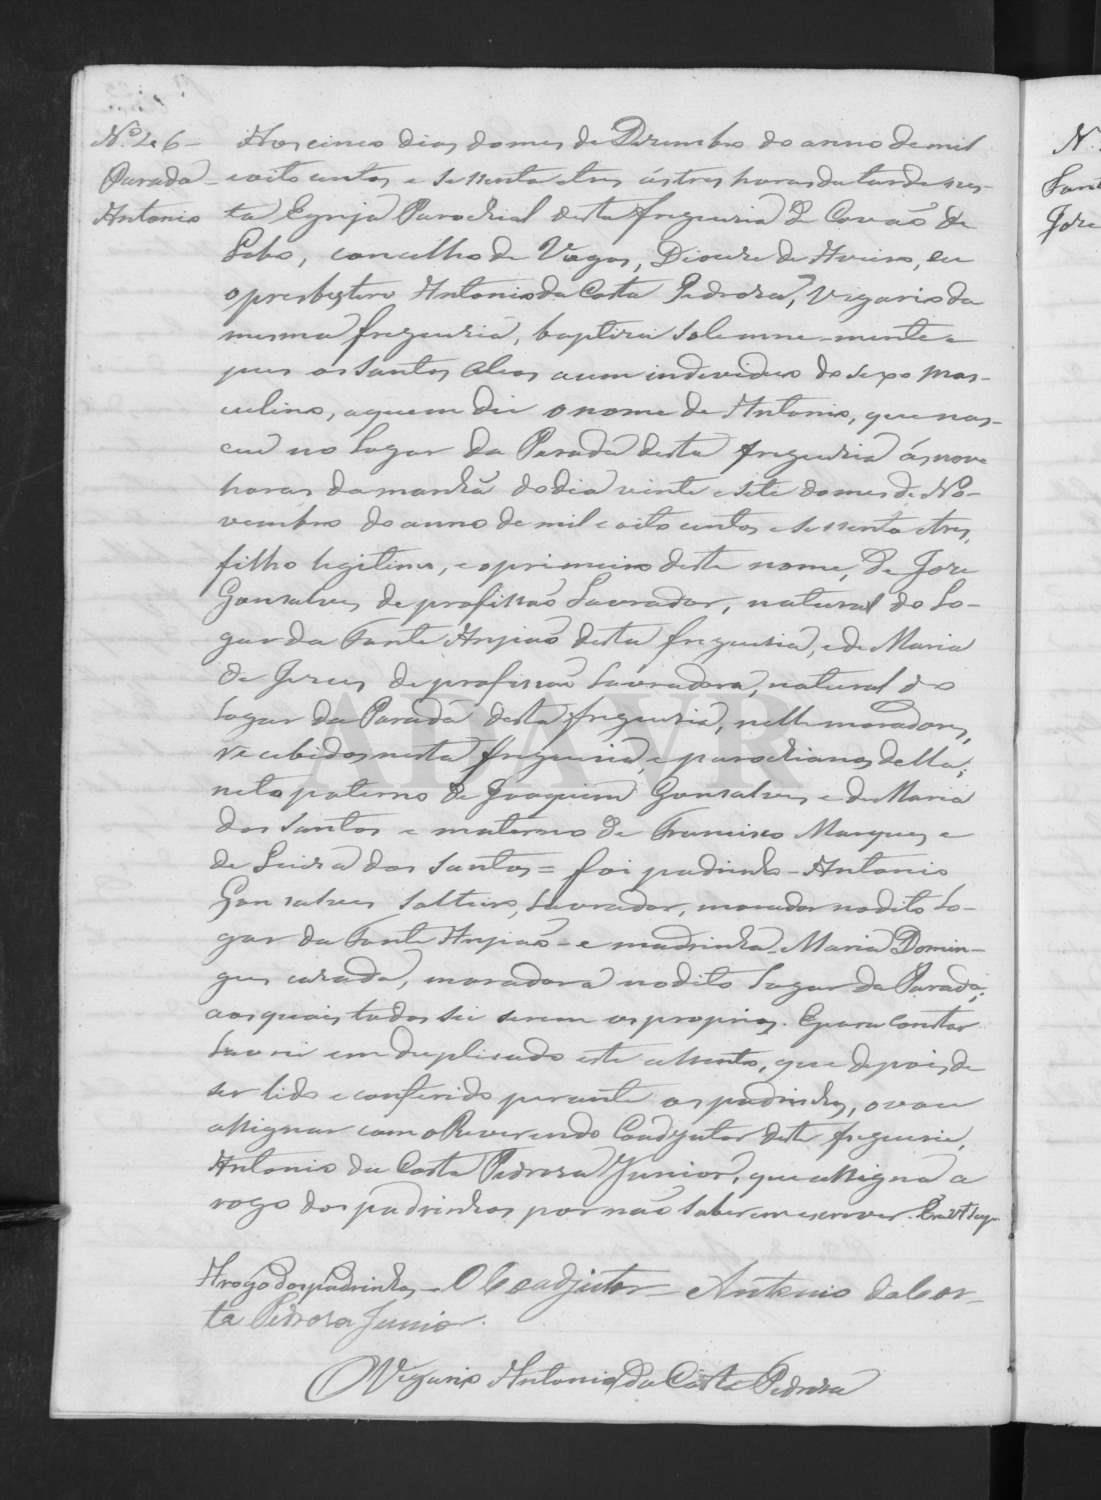 Nº 46 - Aos cinco dias do mes de Dezembro do anno de mil
Parada - e oito centos e sessenta e tres ás tres horas da tarde nes-
Antonio ta Egreja Parochial desta freguezia de Covão de
Lobo, concelho de Vagos, Diocese de Aveiro, eu
o presbytero Antonio da Costa Pedroza, Vigario da
mesma freguezia, baptizei solemne-mente e
pus os Santos Oleos a um individuo do sexo mas-
culino, a quem dei o nome de Antonio, que nas-
ceu no Lugar da Parada desta freguezia ás nove
horas da manhã do dia vinte e sete do mes de No-
vembro do anno de mil e oito centos e sessenta e tres,
filho legitimo, e o primeiro deste nome, de Joze
Gonsalves de profissão Lavrador, natural do Lo-
gar da Fonte Anjião desta freguezia, e de Maria
de Jezus de profissão Lavradora, natural do
Lugar da Parada desta freguezia, nelle moradores,
recebidos nesta freguezia, e parochianos della;
neto paterno de Joaquim Gonsalves e de Maria
dos Santos e materno de Francisco Marques e
de Luiza dos Santos = foi padrinho - Antonio
Gonsalves Solteiro, Lavrador, morador no dito Lo-
gar da Fonte Anjião - e madrinha - Maria Domin-
gues cazada, moradora no dito Lugar da Parada;
aos quais todos sei serem os proprios. E para constar
Lavrei em duplicado este assento, que depois de
ser lido e conferido perante os padrinhos, o vou
assignar com o Reverendo Coadjutor desta freguezia,
Antonio da Costa Pedroza Junior, que assigna a
rogo dos padrinhos por não saberem escrever. Era ut supr
A rogo dos padrinhos - O Coadjutor = Antonio da Cos-
ta Pedroza Junior.
O Vigario Antonio da Costa Pedroza
ADAVR
N.
Joze